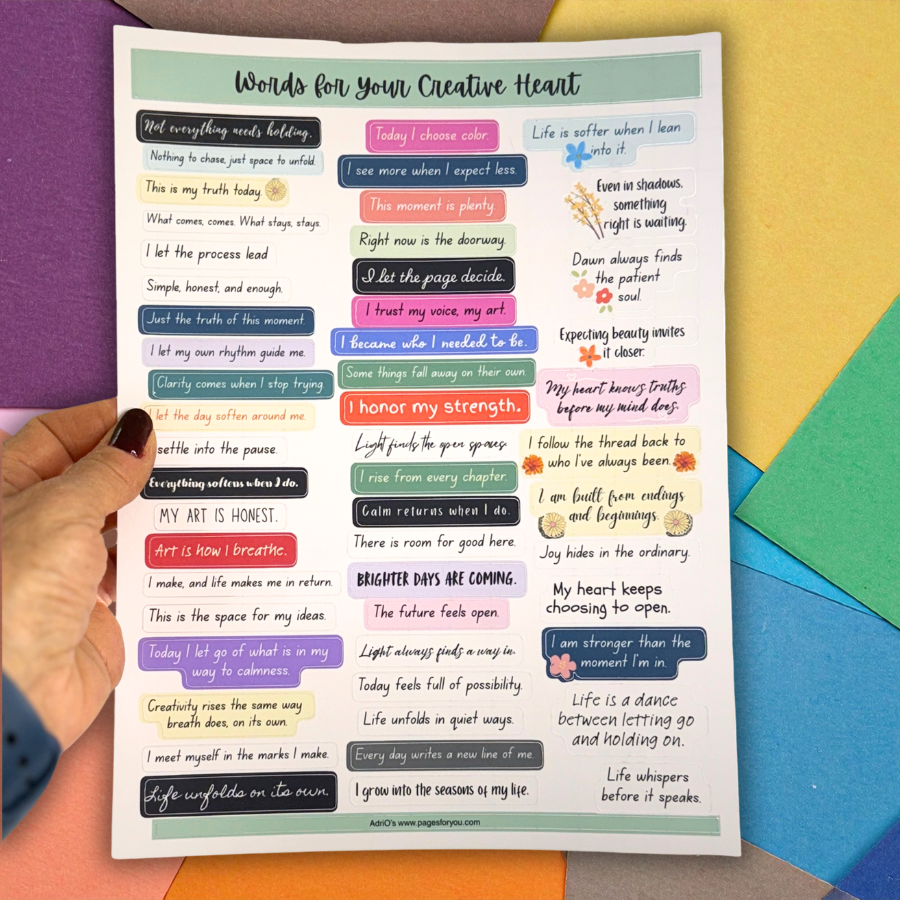 Words for Your Creative Heart
Not everything needs holding.
Nothing to chase, just space to unfold.
This is my truth today.
What comes, comes. What stays, stays.
I let the process lead
Simple, honest, and enough.
Just the truth of this moment.
I let my own rhythm guide me.
Clarity comes when I stop trying.
I let the day soften around me.
settle into the pause.
Everything softens when I do.
MY ART IS HONEST.
Art is how I breathe.
I make, and life makes me in return.
This is the space for my ideas.
Today I let go of what is in my
way to calmness.
Creativity rises the same way
breath does, on its own.
I meet myself in the marks I make.
Life unfolds on its own.
Today I choose color.
I see more when I expect less.
This moment is plenty.
Right now is the doorway.
I let the page decide.
I trust my voice, my art.
I became who I needed to be.
Some things fall away on their own.
I honor my strength.
Light finds the open spaces.
I rise from every chapter.
Calm returns when I do.
There is room for good here.
BRIGHTER DAYS ARE COMING.
The future feels open.
Light always finds a way in.
Today feels full of possibility.
Life unfolds in quiet ways.
Every day writes a new line of me.
I grow into the seasons of my life.
Life is softer when I lean
into it.
Even in shadows,
something
right is waiting.
Dawn always finds
the patient
soul.
Expecting beauty invites
it closer.
My heart knows truths
before my mind does.
I follow the thread back to
who I've always been.
I am built from endings
and beginnings.
Joy hides in the ordinary.
My heart keeps
choosing to open.
I am stronger than the
moment I'm in.
Life is a dance
between letting go
and holding on.
Life whispers
before it speaks.
AdriO's www.pagesforyou.com